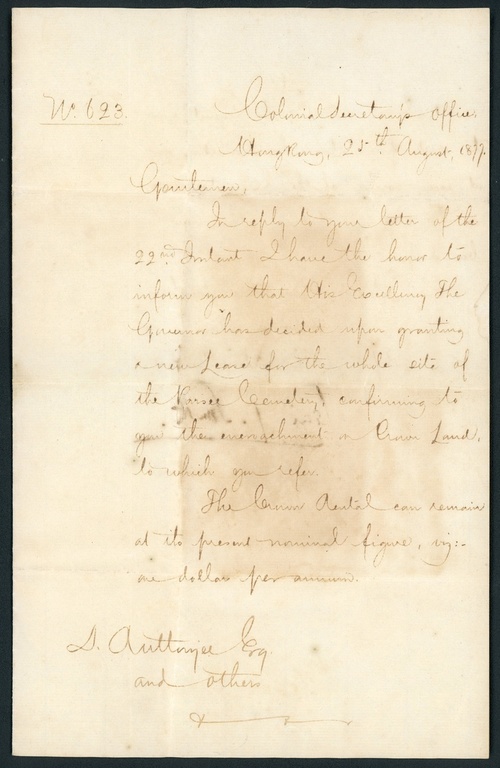 No. 623.
Colonial Secretary's Office,
Hongkong, 25th August, 1877.
Gentlemen,
In reply to your letter of the
22nd Instant I have the honor to
inform you that His Excellency The
Governor has decided upon granting
a new Lease for the whole site of
the Parsee Cemetery, confirming to
you the encroachment on Crown Land,
to which you refer.
The Crown Rental can remain
at its present nominal figure, viz:-
one dollar per annum.
D. Ruttonjee Esq.
and others